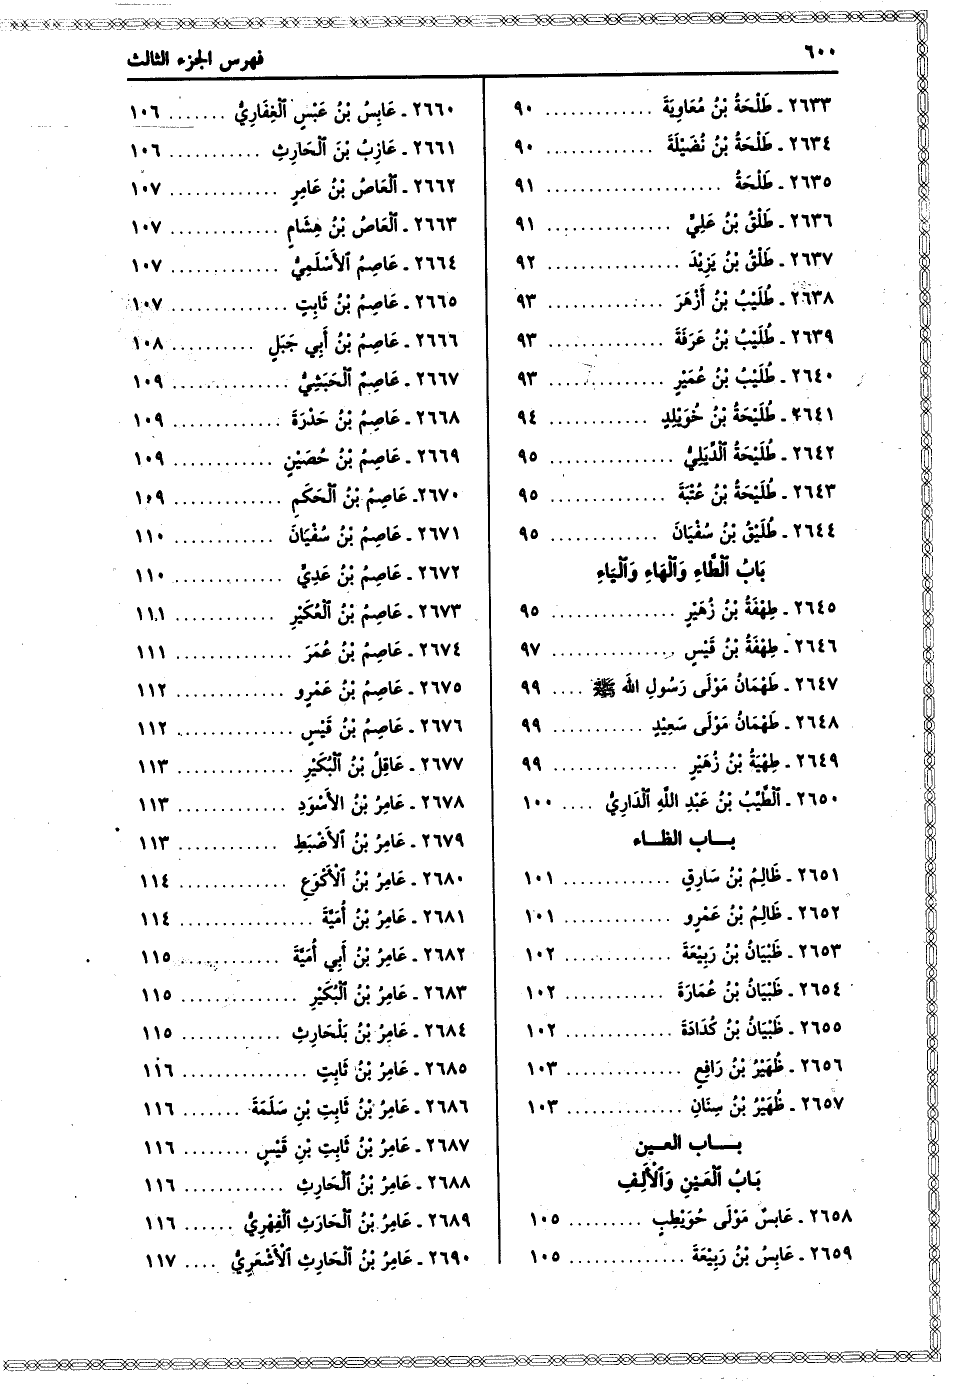 ٦٠٠
فهرس الجزء الثالث
٢٦٣٣ ـ طَلْحَةُ بْنُ مُعَاوِيَةَ ............ ٩٠
٢٦٣٤ ـ طَلْحَةُ بْنُ نُضَيْلَةَ ............ ٩٠
٢٦٣٥ ـ طَلْحَةُ ............ ٩١
٢٦٣٦ ـ طَلْقُ بْنُ عَلِيٍّ ............ ٩١
٢٦٣٧ ـ طَلْقُ بْنُ يَزِيْدَ ............ ٩٢
٢٦٣٨ ـ طُلَيْبُ بْنُ أَزْهَرَ ............ ٩٣
٢٦٣٩ ـ طُلَيْبُ بْنُ عَرَفَةَ ............ ٩٣
٢٦٤٠ ـ طُلَيْبُ بْنُ عُمَيْرٍ ............ ٩٣
٢٦٤١ ـ طُلَيْحَةُ بْنُ خُوَيْلِدٍ ............ ٩٤
٢٦٤٢ ـ طُلَيْحَةُ ٱلدِّيَلِيُّ ............ ٩٥
٢٦٤٣ ـ طُلَيْحَةُ بْنُ عُتْبَةَ ............ ٩٥
٢٦٤٤ ـ طُلَيْقُ بْنُ سُفْيَانَ ............ ٩٥
بَابُ ٱلطَّاءِ وَٱلْهَاءِ وَٱلْيَاءِ
٢٦٤٥ ـ طِهْفَةُ بْنُ زُهَيْرٍ ............ ٩٥
٢٦٤٦ ـ طِهْفَةُ بْنُ قَيْسٍ ............ ٩٧
٢٦٤٧ ـ طَهْمَانُ مَوْلَى رَسُولِ الله ﷺ .... ٩٩
٢٦٤٨ ـ طَهْمَانُ مَوْلَى سَعِيْدٍ ............ ٩٩
٢٦٤٩ ـ طِهْيَةُ بْنُ زُهَيْرٍ ............ ٩٩
٢٦٥٠ ـ ٱلطَّيِّبُ بْنُ عَبْدِ اللَّهِ ٱلدَّارِيُّ .... ١٠٠
بــاب الظــاء
٢٦٥١ ـ ظَالِمُ بْنُ سَارِقٍ ............ ١٠١
٢٦٥٢ ـ ظَالِمُ بْنُ عَمْرِو ............ ١٠١
٢٦٥٣ ـ ظَبْيَانُ بْنُ رَبِيْعَةَ ............ ١٠٢
٢٦٥٤ ـ ظَبْيَانُ بْنُ عُمَارَةَ ............ ١٠٢
٢٦٥٥ ـ ظَبْيَانُ بْنُ كُدَادَةَ ............ ١٠٢
٢٦٥٦ ـ ظُهَيْرُ بْنُ رَافِعٍ ............ ١٠٣
٢٦٥٧ ـ ظُهَيْرُ بْنُ سِنَانِ ............ ١٠٣
بــاب العـين
بَابُ ٱلْعَيْنِ وَٱلْأَلِفِ
٢٦٥٨ ـ عَابِسٌ مَوْلَى حُوَيْطِبٍ ......... ١٠٥
٢٦٥٩ ـ عَابِسُ بْنُ رَبِيْعَةَ ............ ١٠٥
٢٦٦٠ ـ عَابِسُ بْنُ عَبْسٍ ٱلْغِفَارِيُّ ....... ١٠٦
٢٦٦١ ـ عَازِبُ بْنَ ٱلْحَارِثِ ............ ١٠٦
٢٦٦٢ ـ ٱلْعَاصُ بْنُ عَامِرٍ ............ ١٠٧
٢٦٦٣ ـ ٱلْعَاصُ بْنُ هِشَامٍ ............ ١٠٧
٢٦٦٤ ـ عَاصِمُ ٱلأَسْلَمِيُّ ............ ١٠٧
٢٦٦٥ ـ عَاصِمُ بْنُ ثَابِتٍ ............ ١٠٧
٢٦٦٦ ـ عَاصِمُ بْنُ أَبِي جَبَلٍ .......... ١٠٨
٢٦٦٧ ـ عَاصِمٌ ٱلْحَبَشِيُّ ............ ١٠٩
٢٦٦٨ ـ عَاصِمُ بْنُ حَدْرَةَ ............ ١٠٩
٢٦٦٩ ـ عَاصِمُ بْنُ حُصَيْنٍ ............ ١٠٩
٢٦٧٠ ـ عَاصِمُ بْنُ ٱلْحَكَمِ ............ ١٠٩
٢٦٧١ ـ عَاصِمُ بْنُ سُفْيَانَ ............ ١١٠
٢٦٧٢ ـ عَاصِمُ بْنُ عَدِيٍّ ............ ١١٠
٢٦٧٣ ـ عَاصِمُ بْنُ ٱلْعُكَيْرِ ............ ١١١
٢٦٧٤ ـ عَاصِمُ بْنُ عُمَرَ ............ ١١١
٢٦٧٥ ـ عَاصِمُ بْنُ عَمْرِو ............ ١١٢
٢٦٧٦ ـ عَاصِمُ بْنُ قَيْسٍ ............ ١١٢
٢٦٧٧ ـ عَاقِلُ بْنُ ٱلْبُكَيْرِ ............ ١١٣
٢٦٧٨ ـ عَامِرُ بْنُ الأَسْوَدِ ............ ١١٣
٢٦٧٩ ـ عَامِرُ بْنُ ٱلأَضْبَطِ ............ ١١٣
٢٦٨٠ ـ عَامِرُ بْنُ ٱلْأَكْوَعِ ............ ١١٤
٢٦٨١ ـ عَامِرُ بْنُ أُمَيَّةَ ............ ١١٤
٢٦٨٢ ـ عَامِرُ بْنُ أَبِي أُمَيَّةَ ............ ١١٥
٢٦٨٣ ـ عَامِرُ بْنُ ٱلْبُكَيْرِ ............ ١١٥
٢٦٨٤ ـ عَامِرُ بْنُ بَلْحَارِثِ ............ ١١٥
٢٦٨٥ ـ عَامِرُ بْنُ ثَابِتٍ ............ ١١٦
٢٦٨٦ ـ عَامِرُ بْنُ ثَابِتِ بْنِ سَلَمَةَ ....... ١١٦
٢٦٨٧ ـ عَامِرُ بْنُ ثَابِتِ بْنِ قَيْسٍ ........ ١١٦
٢٦٨٨ ـ عَامِرُ بْنُ ٱلْحَارِثِ ............ ١١٦
٢٦٨٩ ـ عَامِرُ بْنُ ٱلْحَارَثِ ٱلْفِهْرِيُّ ...... ١١٦
٢٦٩٠ ـ عَامِرُ بْنُ ٱلْحَارِثِ ٱلْأَشْعَرِيُّ .... ١١٧